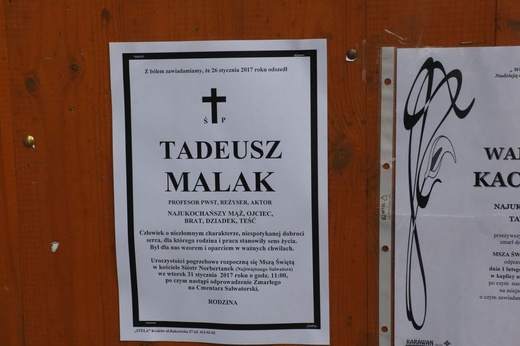 Z bólem zawiadamiamy, że 26 stycznia 2017 roku odszedł
Ś P
TADEUSZ
MALAK
PROFESOR PWST, REŻYSER, AKTOR
NAJUKOCHAŃSZY MĄŻ, OJCIEC,
BRAT, DZIADEK, TEŚĆ
Człowiek o niezłomnym charakterze, niespotykanej dobroci
serca, dla którego rodzina i praca stanowiły sens życia.
Był dla nas wzorem i oparciem w ważnych chwilach.
Uroczystości pogrzebowe rozpoczną się Mszą Świętą
w kościele Sióstr Norbertanek (Najświętszego Salwatora)
we wtorek 31 stycznia 2017 roku o godz. 11:00,
po czym nastąpi odprowadzenie Zmarłego
na Cmentarz Salwatorski.
RODZINA
„STELA" Kraków ul.Rakowicka
Nadzieją
WAL
KAC
NAJUK
TA
przeżywszy
zmarł d
MSZA ŚW
odpraw
dnia 1 lutego
w kaplicy
po czym nast
na miejs
o czym zawiadam
KARAWAN